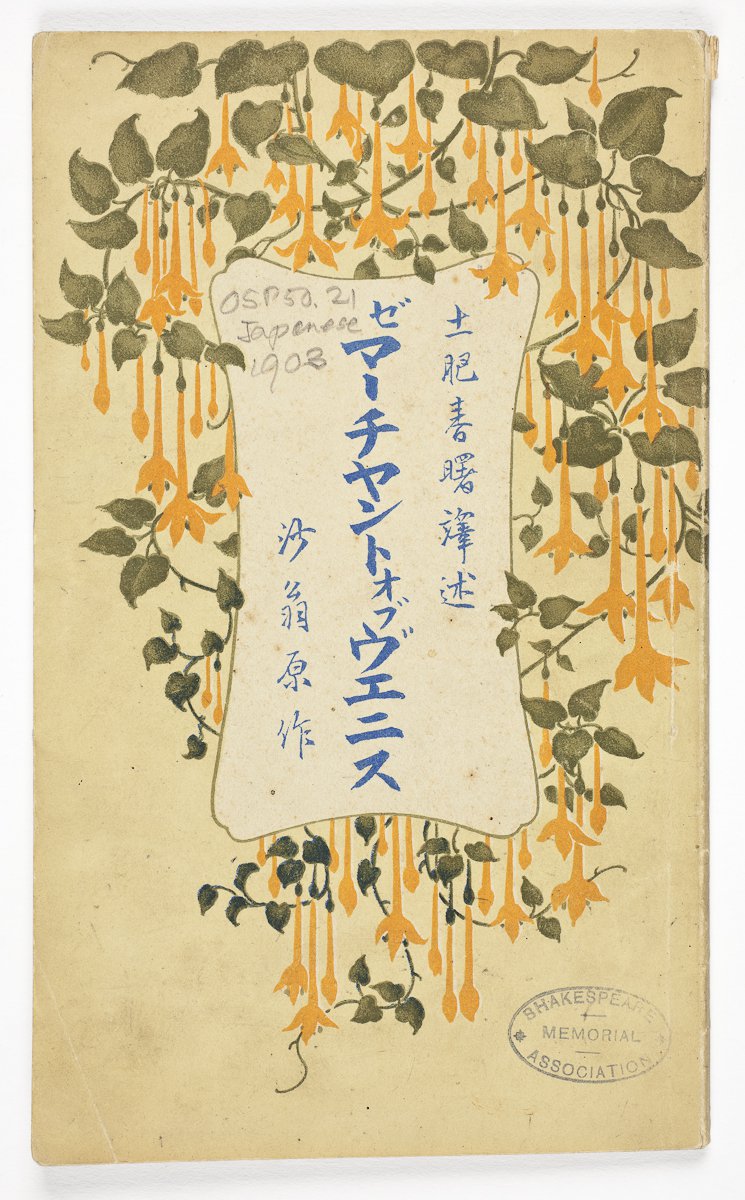 土肥春曙譯述
ゼマーチヤントオブヴエニス
沙翁原作
OSP50.21
Japanese
1903
SHAKESPEARE
MEMORIAL
ASSOCIATION